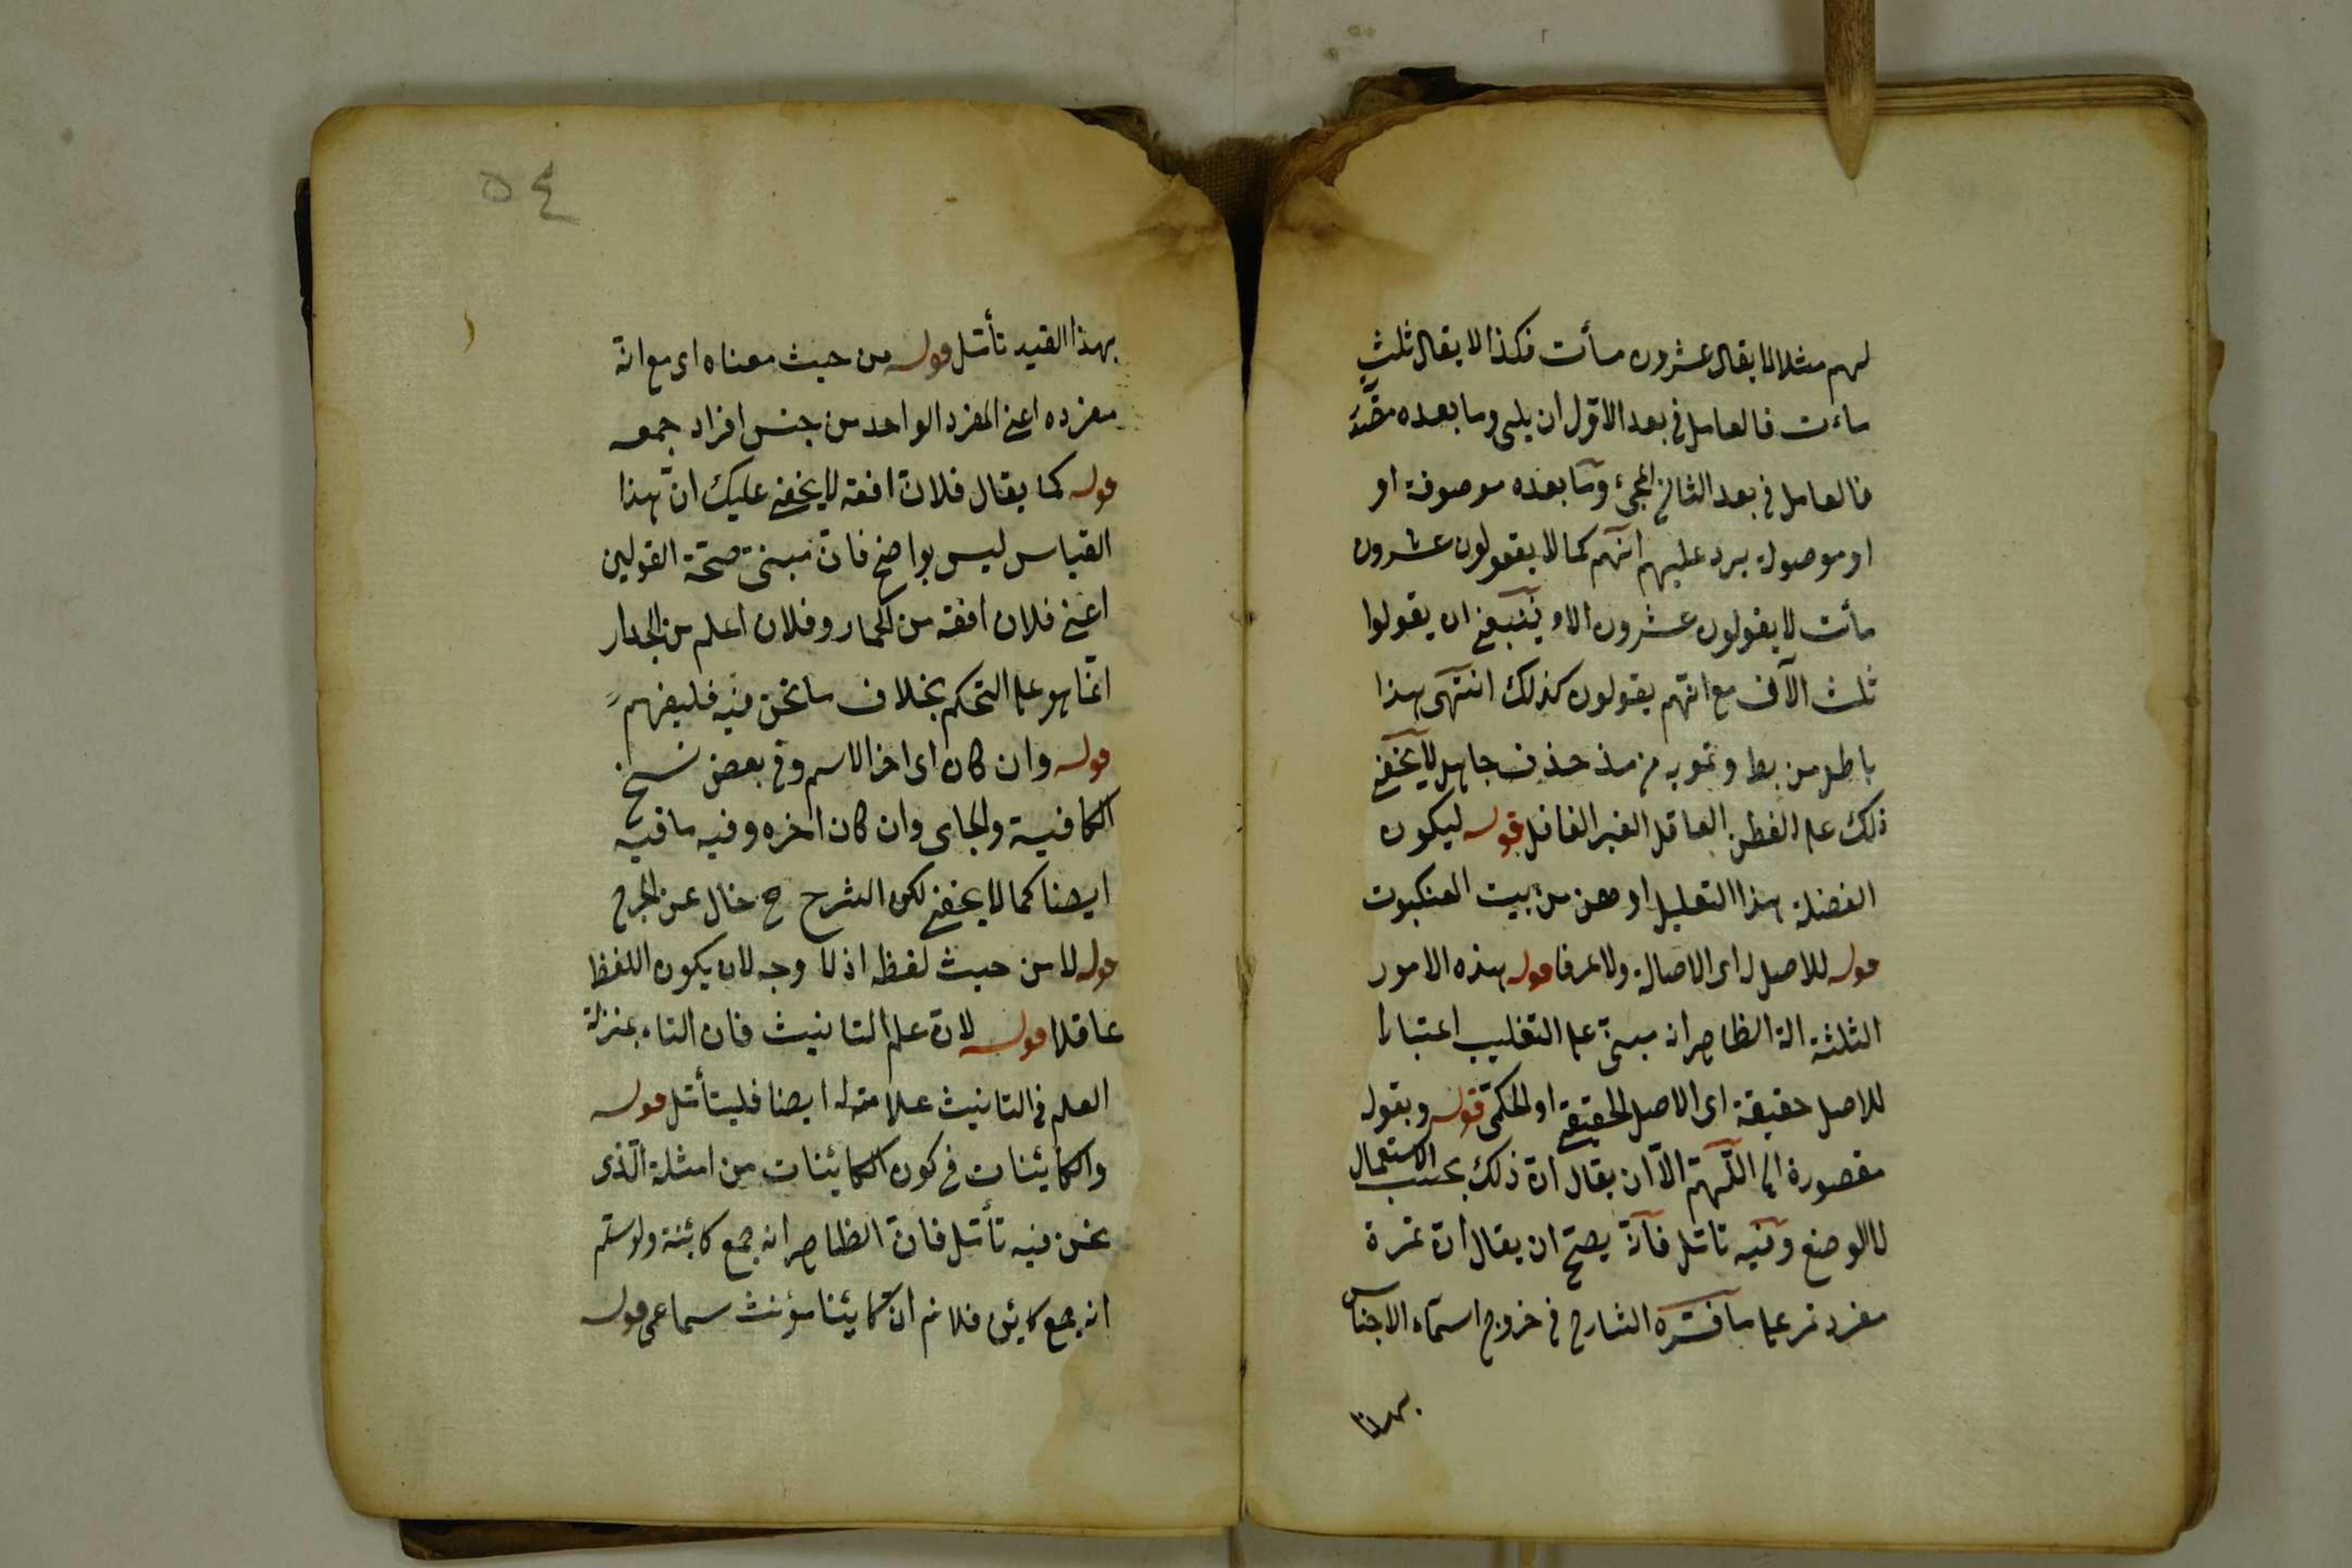 لهم مثلا لا يقال عشرون مأت فكذا لا يقال ثلث
مأت فالعامل في بعد الاول ان يلى وما بعده
فالعامل في بعد الثانى المجئ وما بعده موصوفة او
او موصولة يرد عليهم انهم كما لا يقولون عشرون
مأت لا يقولون عشرون الاو ينبغى ان يقولوا
ثلث الآف مع انهم يقولون كذلك انتهى هذا
باطل من جاهل لا يخفى
ذلك على الفطن العاقل الغير الغافل قوله ليكون
الفضلة هذا التعليل اوهن من بيت العنكبوت
قوله للاصل اى الاصالة ولا قوله هذه الامور
الثلثة الظاهر انه مبنى على التغليب اعتبارا
للاصل حقيقة اى الاصل الحقيقى او الحكمى قوله وبقوله
مقصورة اللهم الا ان يقال ان ذلك بحسب الاستعمال
لا الوضع وفيه تأمل فانه يصح ان يقال ان تمرة
مفرد تمر على ما فسره الشارح في خروج اسماء الاجناس
بهذا
٥٤
بهذا القيد تأمل قوله من حيث معناه اى مع انه
مفرده اعنى المفرد الواحد من جنس افراد جمعه
قوله كما يقال فلان افقه لا يخفى عليك ان هذا
القياس ليس بواضح فان مبنى صحة القولين
اعنى فلان افقه من الحمار وفلان اعلم من الجدار
انما هو على التحكم بخلاف ما نحن فيه فليفهم
قوله وان كان اى اخر الاسم وفى بعض نسخ
الكافية والجامى وان كان اخره وفيه ما فيه
ايضا كما لا يخفى لكن الشرح ح خال عن الجرح
قوله لا من حيث لفظه اذ لا وجه لان يكون اللفظ
عاقلا قوله لان علم التانيث فان التاء بمنزلة
العلم في التانيث علامة له ايضا فليتأمل قوله
والكائنات في كون الكائنات من امثلة الذى
نحن فيه تأمل فان الظاهر انه جمع كائنة ولو سلم
انه جمع كائن فلا نم ان كائنا مؤنث سماعى قوله